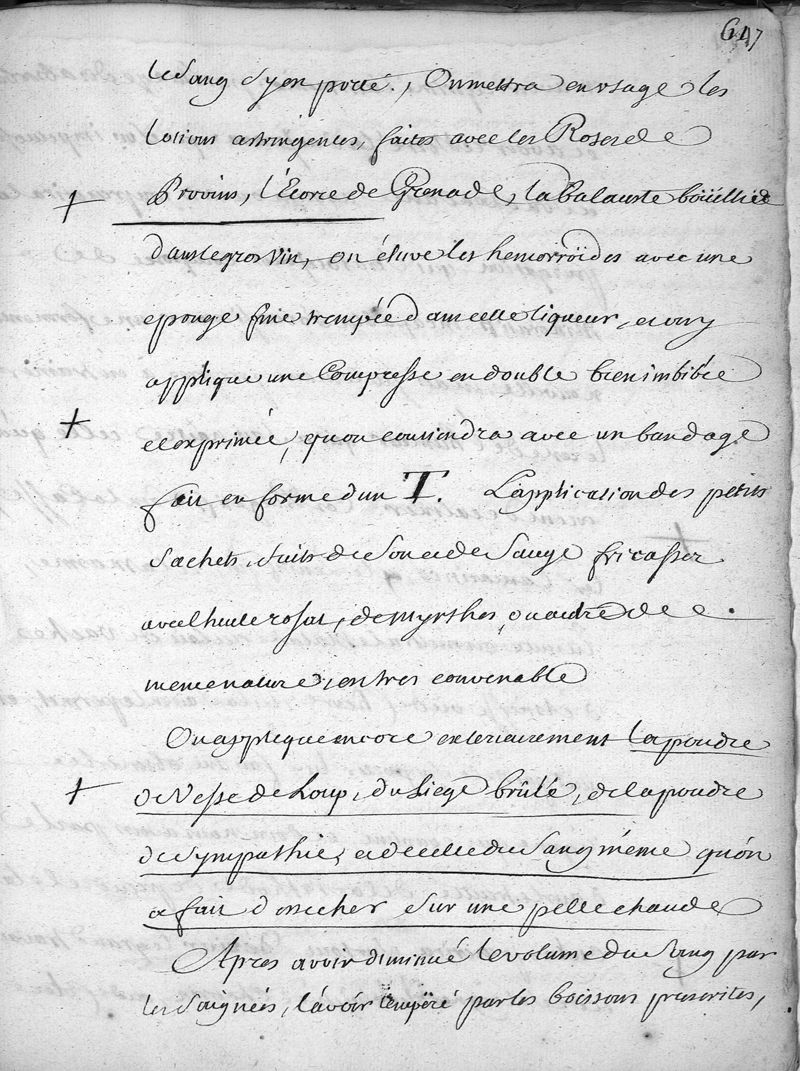 647
le Sang s'y est porté., On mettra en usage les
lotions astringentes, faites avec les Roses de
Provins, l'Ecorce de Grenade, la Balauste boüillie
dans le gros vin, on étuve les hemorroïdes avec une
eponge fine trempée dans cette liqueur, et on y
applique une Compresse en double bien imbibée
et exprimée, qu'on contiendra avec un bandage
fait en forme d'un T. L'application des petits
Sachets, faits de Son et de Sauge fricassez
avec l'huile rosat, de Myrthes, ou autre de
meme nature, est tres convenable
On applique encore exterieurement la poudre
de Vesse de Loup, du Liege brûlé, de la poudre
de Sympathie, et de celle du Sang même qu'on
a fait dessecher sur une pelle chaude
Apres avoir diminué le volume du Sang par
les Saignées, l'avoir temperé par les boissons prescrites,